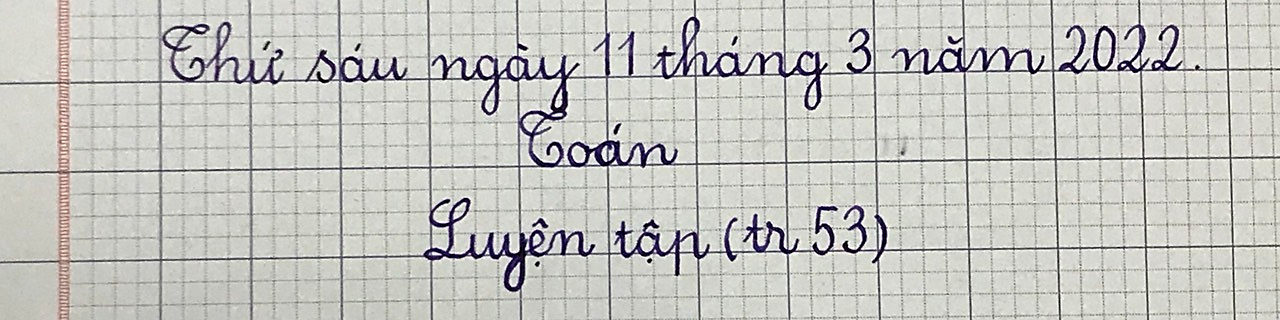 Thứ sáu ngày 11 tháng 3 năm 2022.
Toán
Luyện tập (tr 53)